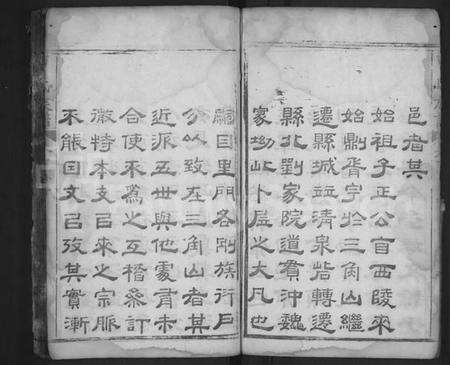 邑者其
始祖子正公自西陵來
始剏胥宇於三角山繼
遷縣城竝清泉砦轉遷
縣北劉家院道貫沖魏
家坳此卜居之大凡也
嗣囙里門各剛族衍戶
分以致在三角山者其
近派五世與他處咠未
合使不為之互稽叅訂
微特本支已來之宗脈
不能囙文已攷其實漸